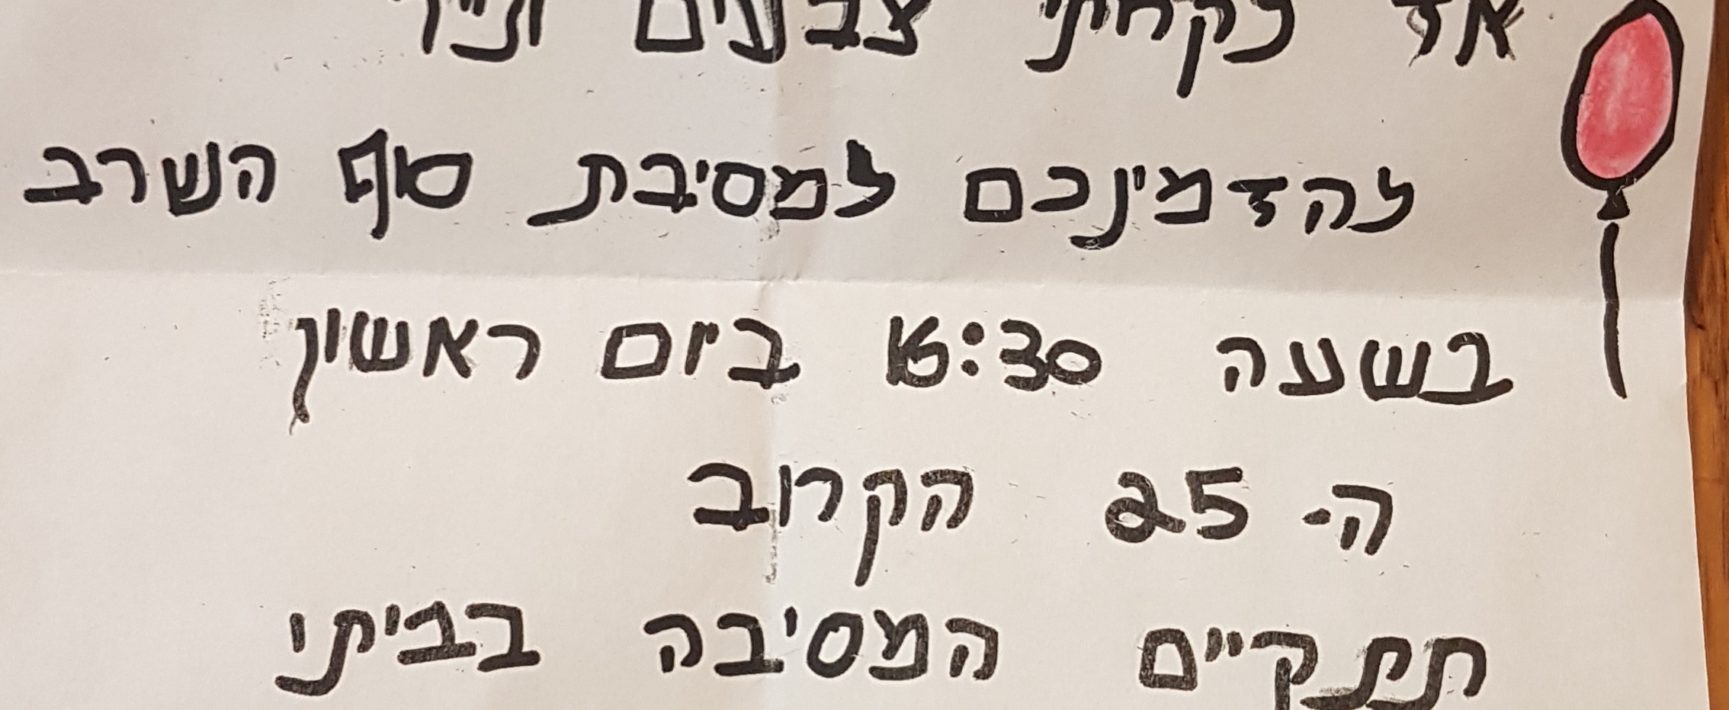 אז לקחתי צבעים ונייר
להדמינכם למסיבת סוף השרב
בשעה 16:30 ביום ראשון
ה- 25 הקרוב
תתקיים המסיבה בביתי